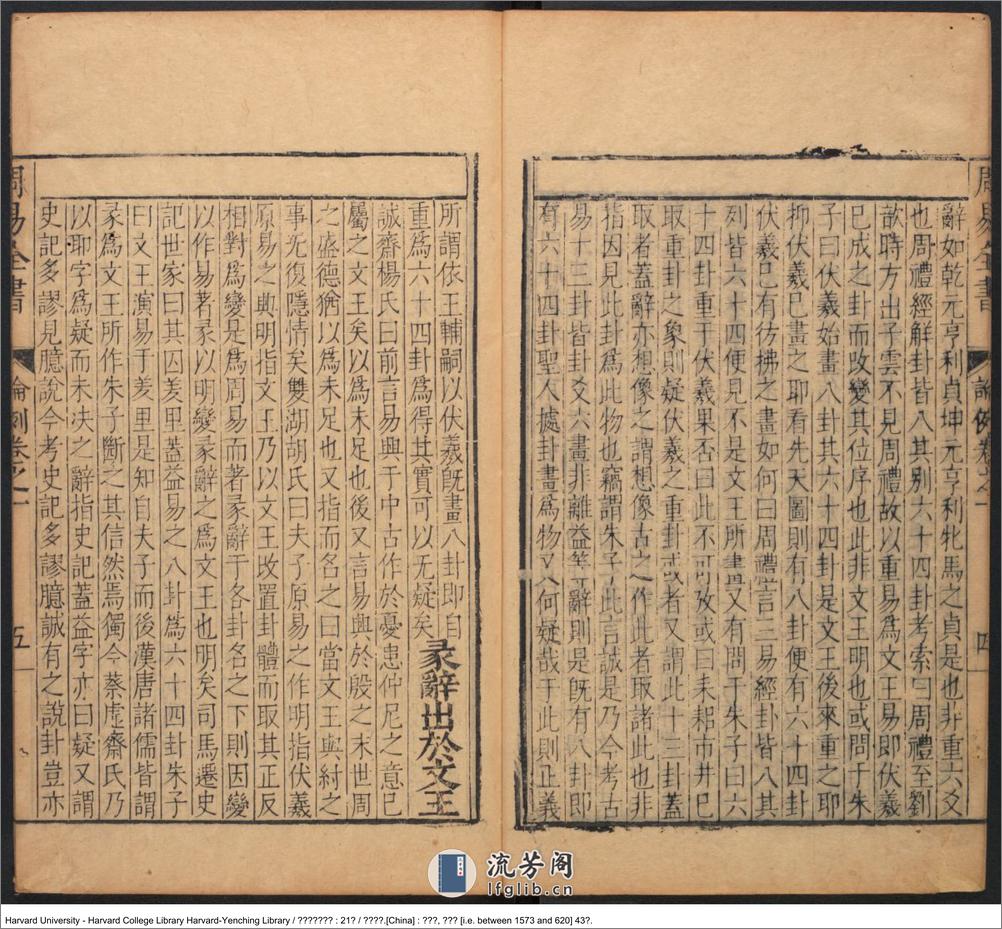 周易全書 論例卷之一 四
辭如乾元亨利貞坤元亨利牝馬之貞是也非重六爻
也周禮經解卦皆八其别六十四卦考索曰周禮至劉
歆時方出子雲不見周禮故以重易爲文王易即伏羲
已成之卦而改變其位序也此非文王明也或問于朱
子曰伏羲始畫八卦其六十四卦是文王後來重之耶
抑伏羲已畫之耶看先天圖則有八卦便有六十四卦
伏羲已有彷拂之畫如何曰周禮言三易經卦皆八其
列皆六十四便見不是文王所畫又有問于朱子曰六
十四卦重于伏羲果否曰此不可攷或曰耒耜市井已
取重卦之象則疑伏羲之重卦或者又謂此十三卦蓋
取者蓋辭亦想像之謂想像古之作此者取諸此也非
指因見此卦爲此物也竊謂朱子此言誠是乃今考古
易十三卦皆卦爻六畫非離益等辭則是旣有八卦即
有六十四卦聖人據卦畫爲物又何疑哉于此則正義
所謂依王輔嗣以伏羲旣畫八卦即自
重爲六十四卦爲得其實可以无疑矣
彖辭出於文王
誠齋楊氏曰前言易興于中古作於憂患仲尼之意已
屬之文王矣以爲未足也又言易興於殷之末世周
之盛德猶以爲未足也又指而名之曰當文王與紂之
事无復隱情矣雙湖胡氏曰夫子原易之作明指伏羲
原易之興明指文王乃以文王改置卦體而取其正反
相對爲變是爲周易而著彖辭于各卦名之下則因變
以作易著彖以明變彖辭之爲文王也明矣司馬遷史
記世家曰其囚羑里蓋益易之八卦爲六十四卦朱子
曰文王演易于羑里是知自夫子而後漢唐諸儒皆謂
彖爲文王所作朱子斷之其信然焉獨今蔡虚齋氏乃
以耶字爲疑而未决之辭指史記蓋益字亦曰疑又謂
史記多謬見臆說今考史記多謬臆誠有之說卦豈亦
周易全書 論例卷之一 五
流芳阁
lfglib.cn
Harvard University - Harvard College Library Harvard-Yenching Library / ??????? : 21? / ????.[China] : ???, ??? [i.e. between 1573 and 620] 43?.